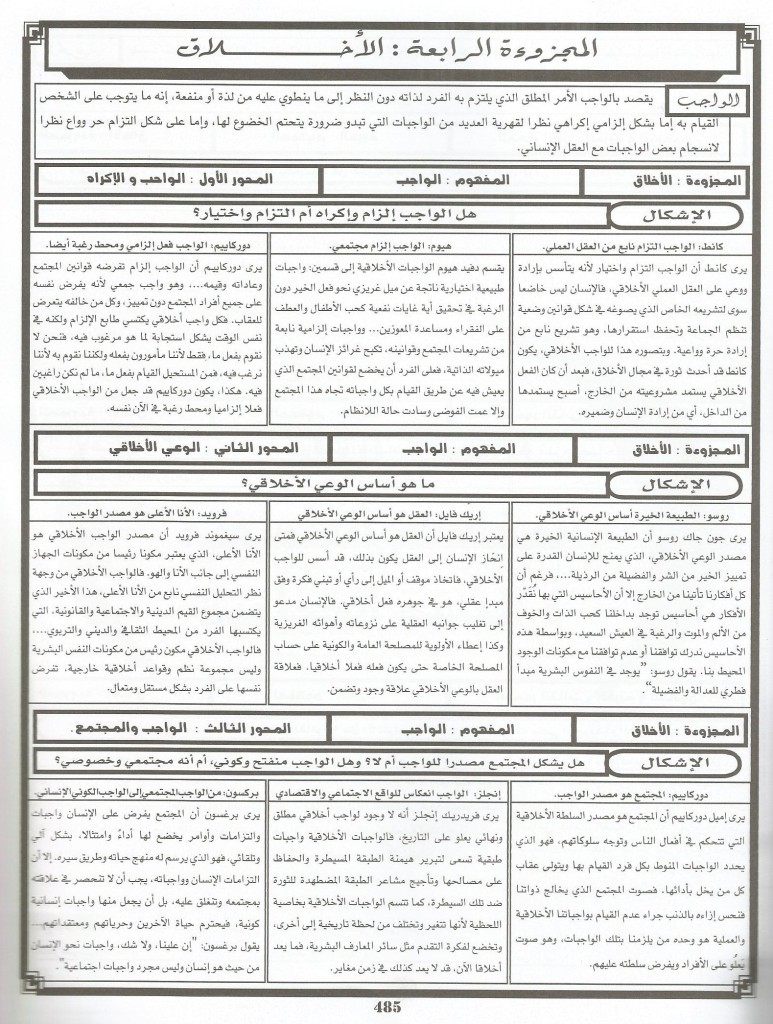 المجزوءة الرابعة : الأخـــلاق
الواجب
يقصد بالواجب الأمر المطلق الذي يلتزم به الفرد لذاته دون النظر إلى ما ينطوي عليه من لذة أو منفعة، إنه ما يتوجب على الشخص
القيام به إما بشكل إلزامي إكراهي نظرا لقهرية العديد من الواجبات التي تبدو ضرورة يتحتم الخضوع لها، وإما على شكل التزام حر وواع نظرا
لانسجام بعض الواجبات مع العقل الإنساني.
المجزوءة : الأخلاق
المفهوم : الواجب
المحور الأول : الواجب و الإكراه
الإشكال
هل الواجب إلزام وإكراه أم التزام واختيار؟
كانط: الواجب التزام نابع من العقل العملي.
يرى كانط أن الواجب التزام واختيار لأنه يتأسس بإرادة
ووعي على العقل العملي الأخلاقي، فالإنسان ليس خاضعا
سوى لتشريعه الخاص الذي يصوغه في شكل قوانين وضعية
تنظم الجماعة وتحفظ استقرارها، وهو تشريع نابع من
إرادة حرة وواعية. وبتصوره هذا للواجب الأخلاقي، يكون
كانط قد أحدث ثورة في مجال الأخلاق، فبعد أن كان الفعل
الأخلاقي يستمد مشروعيته من الخارج، أصبح يستمدها
من الداخل، أي من إرادة الإنسان وضميره.
هيوم: الواجب إلزام مجتمعي.
يقسم دفيد هيوم الواجبات الأخلاقية إلى قسمين: واجبات
طبيعية اختيارية ناتجة عن ميل غريزي نحو فعل الخير دون
الرغبة في تحقيق أية غايات نفعية كحب الأطفال والعطف
على الفقراء ومساعدة المعوزين... وواجبات إلزامية نابعة
من تشريعات المجتمع وقوانينه. تكبح غرائز الإنسان وتهذب
ميولاته الذاتية، فعلى الفرد أن يخضع لقوانين المجتمع الذي
يعيش فيه عن طريق القيام بكل واجباته تجاه هذا المجتمع
وإلا عمت الفوضى وسادت حالة اللانظام.
دوركايم: الواجب فعل إلزامي ومحط رغبة أيضا.
يرى دوركايم أن الواجب إلزام تفرضه قوانين المجتمع
وعاداته وقيمه.... وهو واجب جمعي لأنه يفرض نفسه
على جميع أفراد المجتمع دون تمييز، وكل من خالفه يتعرض
للعقاب. فكل واجب أخلاقي يكتسي طابع الإلزام ولكنه في
نفس الوقت يشكل استجابة لما هو مرغوب فيه، فنحن لا
نقوم بفعل ما، فقط لأننا مأمورون بفعله ولكننا نقوم به لأننا
نرغب فيه، فمن المستحيل القيام بفعل ما، ما لم نكن راغبين
فيه. هكذا، يكون دوركايم قد جعل من الواجب الأخلاقي
فعلا إلزاميا ومحط رغبة في الآن نفسه.
المجزوءة : الأخلاق
المفهوم : الواجب
المحور الثاني : الوعي الأخلاقي
الإشكال
ما هو أساس الوعي الأخلاقي؟
روسو: الطبيعة الخيرة أساس الوعي الأخلاقي.
يرى جون جاك روسو أن الطبيعة الإنسانية الخيرة هي
مصدر الوعي الأخلاقي، الذي يمنح للإنسان القدرة على
تمييز الخير من الشر والفضيلة من الرذيلة.... فرغم أن
كل أفكارنا تأتينا من الخارج إلا أن الأحاسيس التي بها نُقَدِّر
الأفكار هي أحاسيس توجد بداخلنا كحب الذات والخوف
من الألم والموت والرغبة في العيش السعيد، وبواسطة هذه
الأحاسيس ندرك توافقنا أو عدم توافقنا مع مكونات الوجود
المحيط بنا. يقول روسو: "يوجد في النفوس البشرية مبدأ
فطري للعدالة والفضيلة".
إريك فايل: العقل هو أساس الوعي الأخلاقي
يعتبر إريك فايل أن العقل هو أساس الوعي الأخلاقي فمتى
انْحَاز الإنسان إلى العقل يكون بذلك، قد أسس للواجب
الأخلاقي، فاتخاذ موقف أو الميل إلى رأي أو تبني فكرة وفق
مبدإ عقلي، هو في جوهره فعل أخلاقي. فالإنسان مدعو
إلى تغليب جوانبه العقلية على نزوعاته وأهوائه الغريزية
وكذا إعطاء الأولوية للمصلحة العامة والكونية على حساب
المصلحة الخاصة حتى يكون فعله فعلا أخلاقيا. فعلاقة
العقل بالوعي الأخلاقي علاقة وجود وتضمن.
فرويد: الأنا الأعلى هو مصدر الواجب.
يرى سيغموند فرويد أن مصدر الواجب الأخلاقي هو
الأنا الأعلى، الذي يعتبر مكونا رئيسا من مكونات الجهاز
النفسي إلى جانب الأنا والهو. فالواجب الأخلاقي من وجهة
نظر التحليل النفسي نابع من الأنا الأعلى، هذا الأخير الذي
يتضمن مجموع القيم الدينية والاجتماعية والقانونية، التي
يكتسبها الفرد من المحيط الثقافي والديني والتربوي....
فالواجب الأخلاقي مكون رئيس من مكونات النفس البشرية
وليس مجموعة نظم وقواعد أخلاقية خارجية. تفرض
نفسها على الفرد بشكل مستقل ومتعال.
المجزوءة : الأخلاق
المفهوم : الواجب
المحور الثالث : الواجب والمجتمع.
الإشكال
هل يشكل المجتمع مصدرا للواجب أم لا؟ وهل الواجب منفتح وكوني، أم أنه مجتمعي وخصوصي؟
دوركايم: المجتمع هو مصدر الواجب.
يرى إميل دوركايم أن المجتمع هو مصدر السلطة الأخلاقية
التي تتحكم في أفعال الناس وتوجه سلوكاتهم، فهو الذي
يحدد الواجبات المنوط بكل فرد القيام بها ويتولى عقاب
كل من يخل بأدائها، فصوت المجتمع الذي يخالج ذواتنا
فنحس إزاءه بالذنب جراء عدم القيام بواجباتنا الأخلاقية
والعملية هو وحده من يلزمنا بتلك الواجبات، وهو صوت
يَعْلُو على الأفراد ويفرض سلطته عليهم.
إنجلز: الواجب انعكاس للواقع الاجتماعي والاقتصادي
يرى فريدريك إنجلز أنه لا وجود لواجب أخلاقي مطلق
ونهائي يعلو على التاريخ، فالواجبات الأخلاقية واجبات
طبقية تسعى لتبرير هيمنة الطبقة المسيطرة والحفاظ
على مصالحها وتأجيج مشاعر الطبقة المضطهدة للثورة
ضد تلك السيطرة، كما تتسم الواجبات الأخلاقية بخاصية
اللحظية لأنها تتغير وتختلف من لحظة تاريخية إلى أخرى،
وتخضع لفكرة التقدم مثل سائر المعارف البشرية، فما يعد
أخلاقا الآن، قد لا يعد كذلك في زمن مغاير.
بركسون: من الواجب المجتمعي إلى الواجب الكوني الإنساني.
يرى برغسون أن المجتمع يفرض على الإنسان واجبات
والتزامات وأوامر يخضع لها أداءً وامتثالا، بشكل آلي
وتلقائي، فهو الذي يرسم له منهج حياته وطريق سيره. إلا أن
التزامات الإنسان وواجباته، يجب أن لا تنحصر في علاقته
بمجتمعه وتنغلق عليه، بل أن يجعل منها واجبات إنسانية
كونية، فيحترم حياة الآخرين وحرياتهم ومعتقداتهم...
يقول برغسون: "إن علينا، ولا شك، واجبات نحو الإنسان
من حيث هو إنسان وليس مجرد واجبات اجتماعية".
485